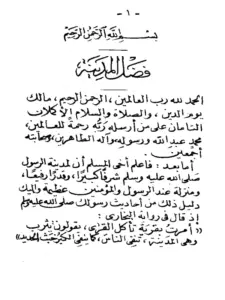 - ١ -
بسم الله الرحمن الرحيم
فضل المدينة
الحمد لله رب العالمين، الرحمن الرحيم، مالك
يوم الدين، والصلاة والسلام الأكملان
التامان على من أرسله ربه رحمة للعالمين،
محمد عبد الله ورسوله وآله الطاهرين وصحابته
أجمعين.
أما بعد: فاعلم أخي المسلم أن لمدينة الرسول
صلى الله عليه وسلم شرفًا كبيرًا، وقدرًا رفيعًا،
ومنزلة عند الرسول والمؤمنين عظيمة وإليك
دليل ذلك من أحاديث رسولك صلى الله عليه وسلم
إذ قال في رواية البخاري:
«أمرت بقرية تأكل القرى، يقولون يثرب
وهي المدينة، تنفي الناس، كما ينفي الكير خبث الحديد»